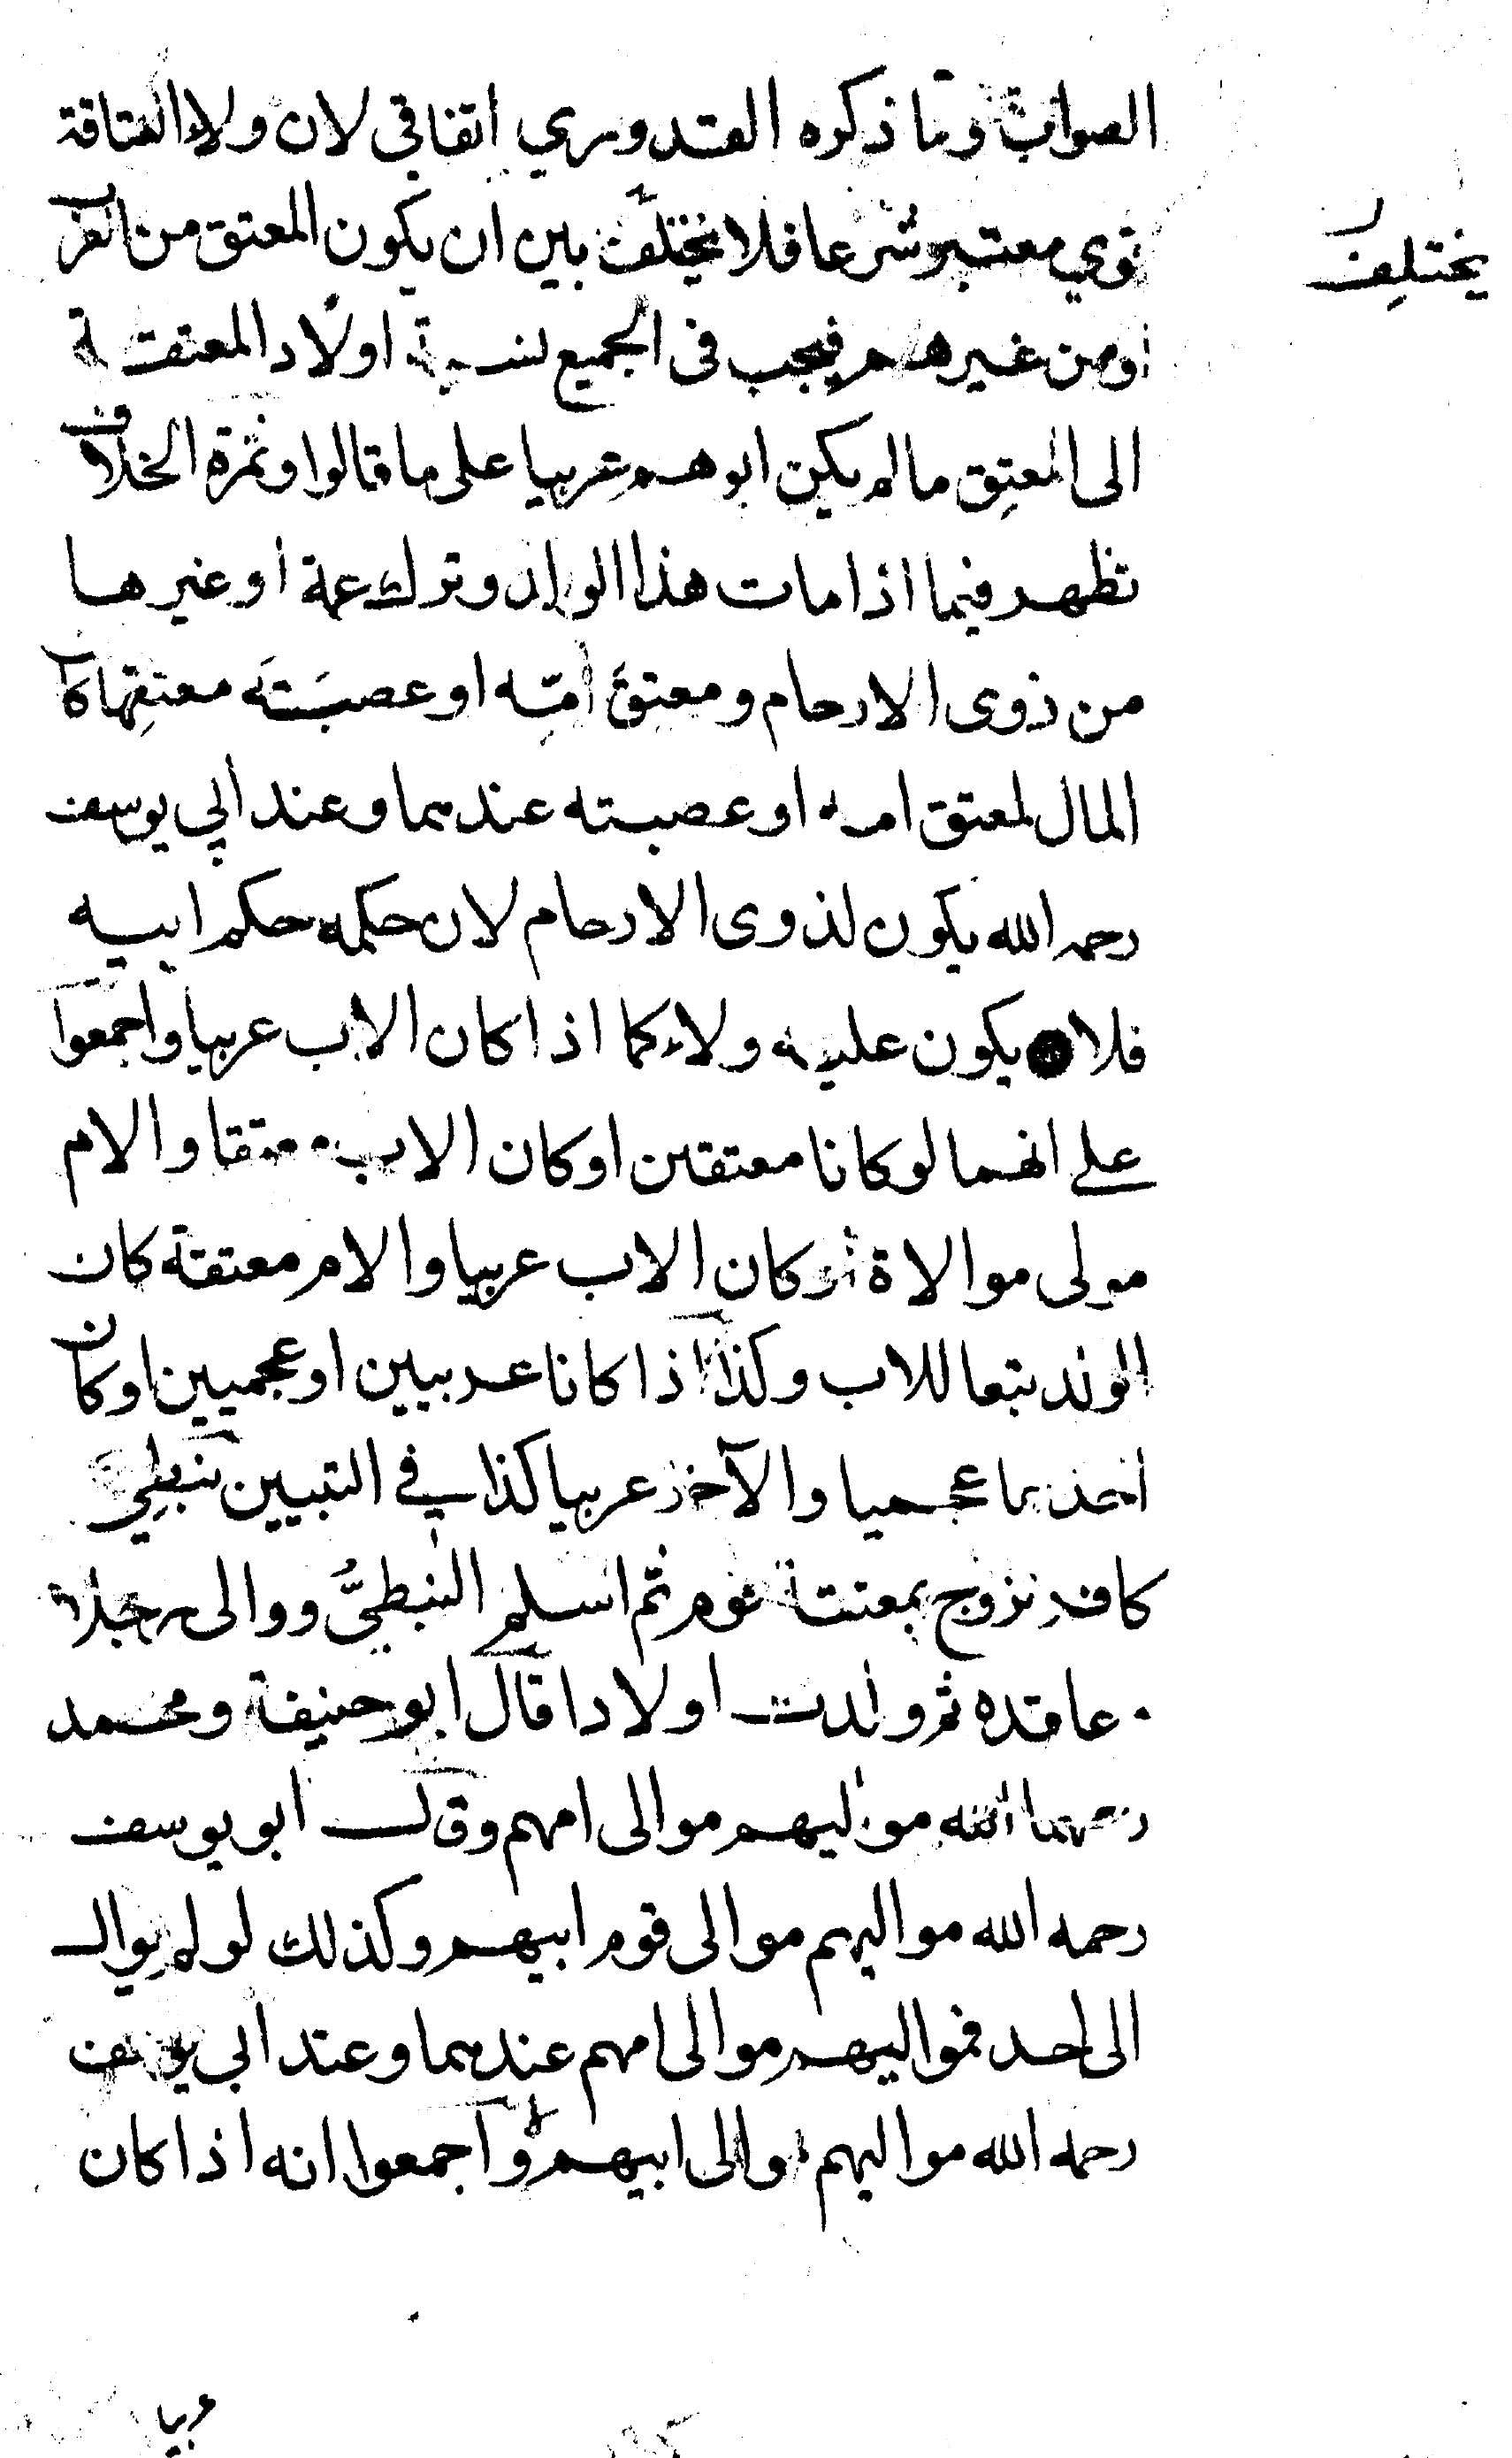 الصواب وما ذكره القدوري اتفاقي لان ولاء العتاقة
قوي معتبر شرعا فلا يختلف بين ان يكون المعتق من العرب
يختلف
اومن غيرهم فيجب في الجميع نسبة اولاد المعتقة
الى المعتق ما لم يكن ابوهم عربيا على ما قالوا وثمرة الخلاف
تظهر فيما اذا مات هذا الولد وترك عمة او غيرها
من ذوى الارحام ومعتق امّه او عصبَته معتقها كان
المال لمعتق امه او عصبته عندهما وعند ابي يوسف
رحمه الله يكون لذوى الارحام لان حكمه حكم ابيه
فلا يكون عليه ولاء كما اذا كان الاب عربيا واجمعوا
على انهما لو كانا معتقين او كان الاب معتقا والام
مولى موالاة او كان الاب عربيا والام معتقة كان
الولد تبعا للاب وكذا اذا كانا عربيين او عجميين او كان
احدهما عجميا والآخر عربيا كذا في التبيين نبطي
كافر تزوج بمعتقة قوم ثم اسلم النبطيُّ ووالى رجلا
عاقده ثم ولدت اولادا قال ابو حنيفة ومحمد
رحمهما الله مواليهم موالى امهم وقال ابو يوسف
رحمه الله مواليهم موالى قوم ابيهم وكذلك لو لم يوال
الى احد فمواليهم موالى امهم عندهما وعند ابي يوسف
رحمه الله مواليهم موالى ابيهم واجمعوا انه اذا كان
عربيا